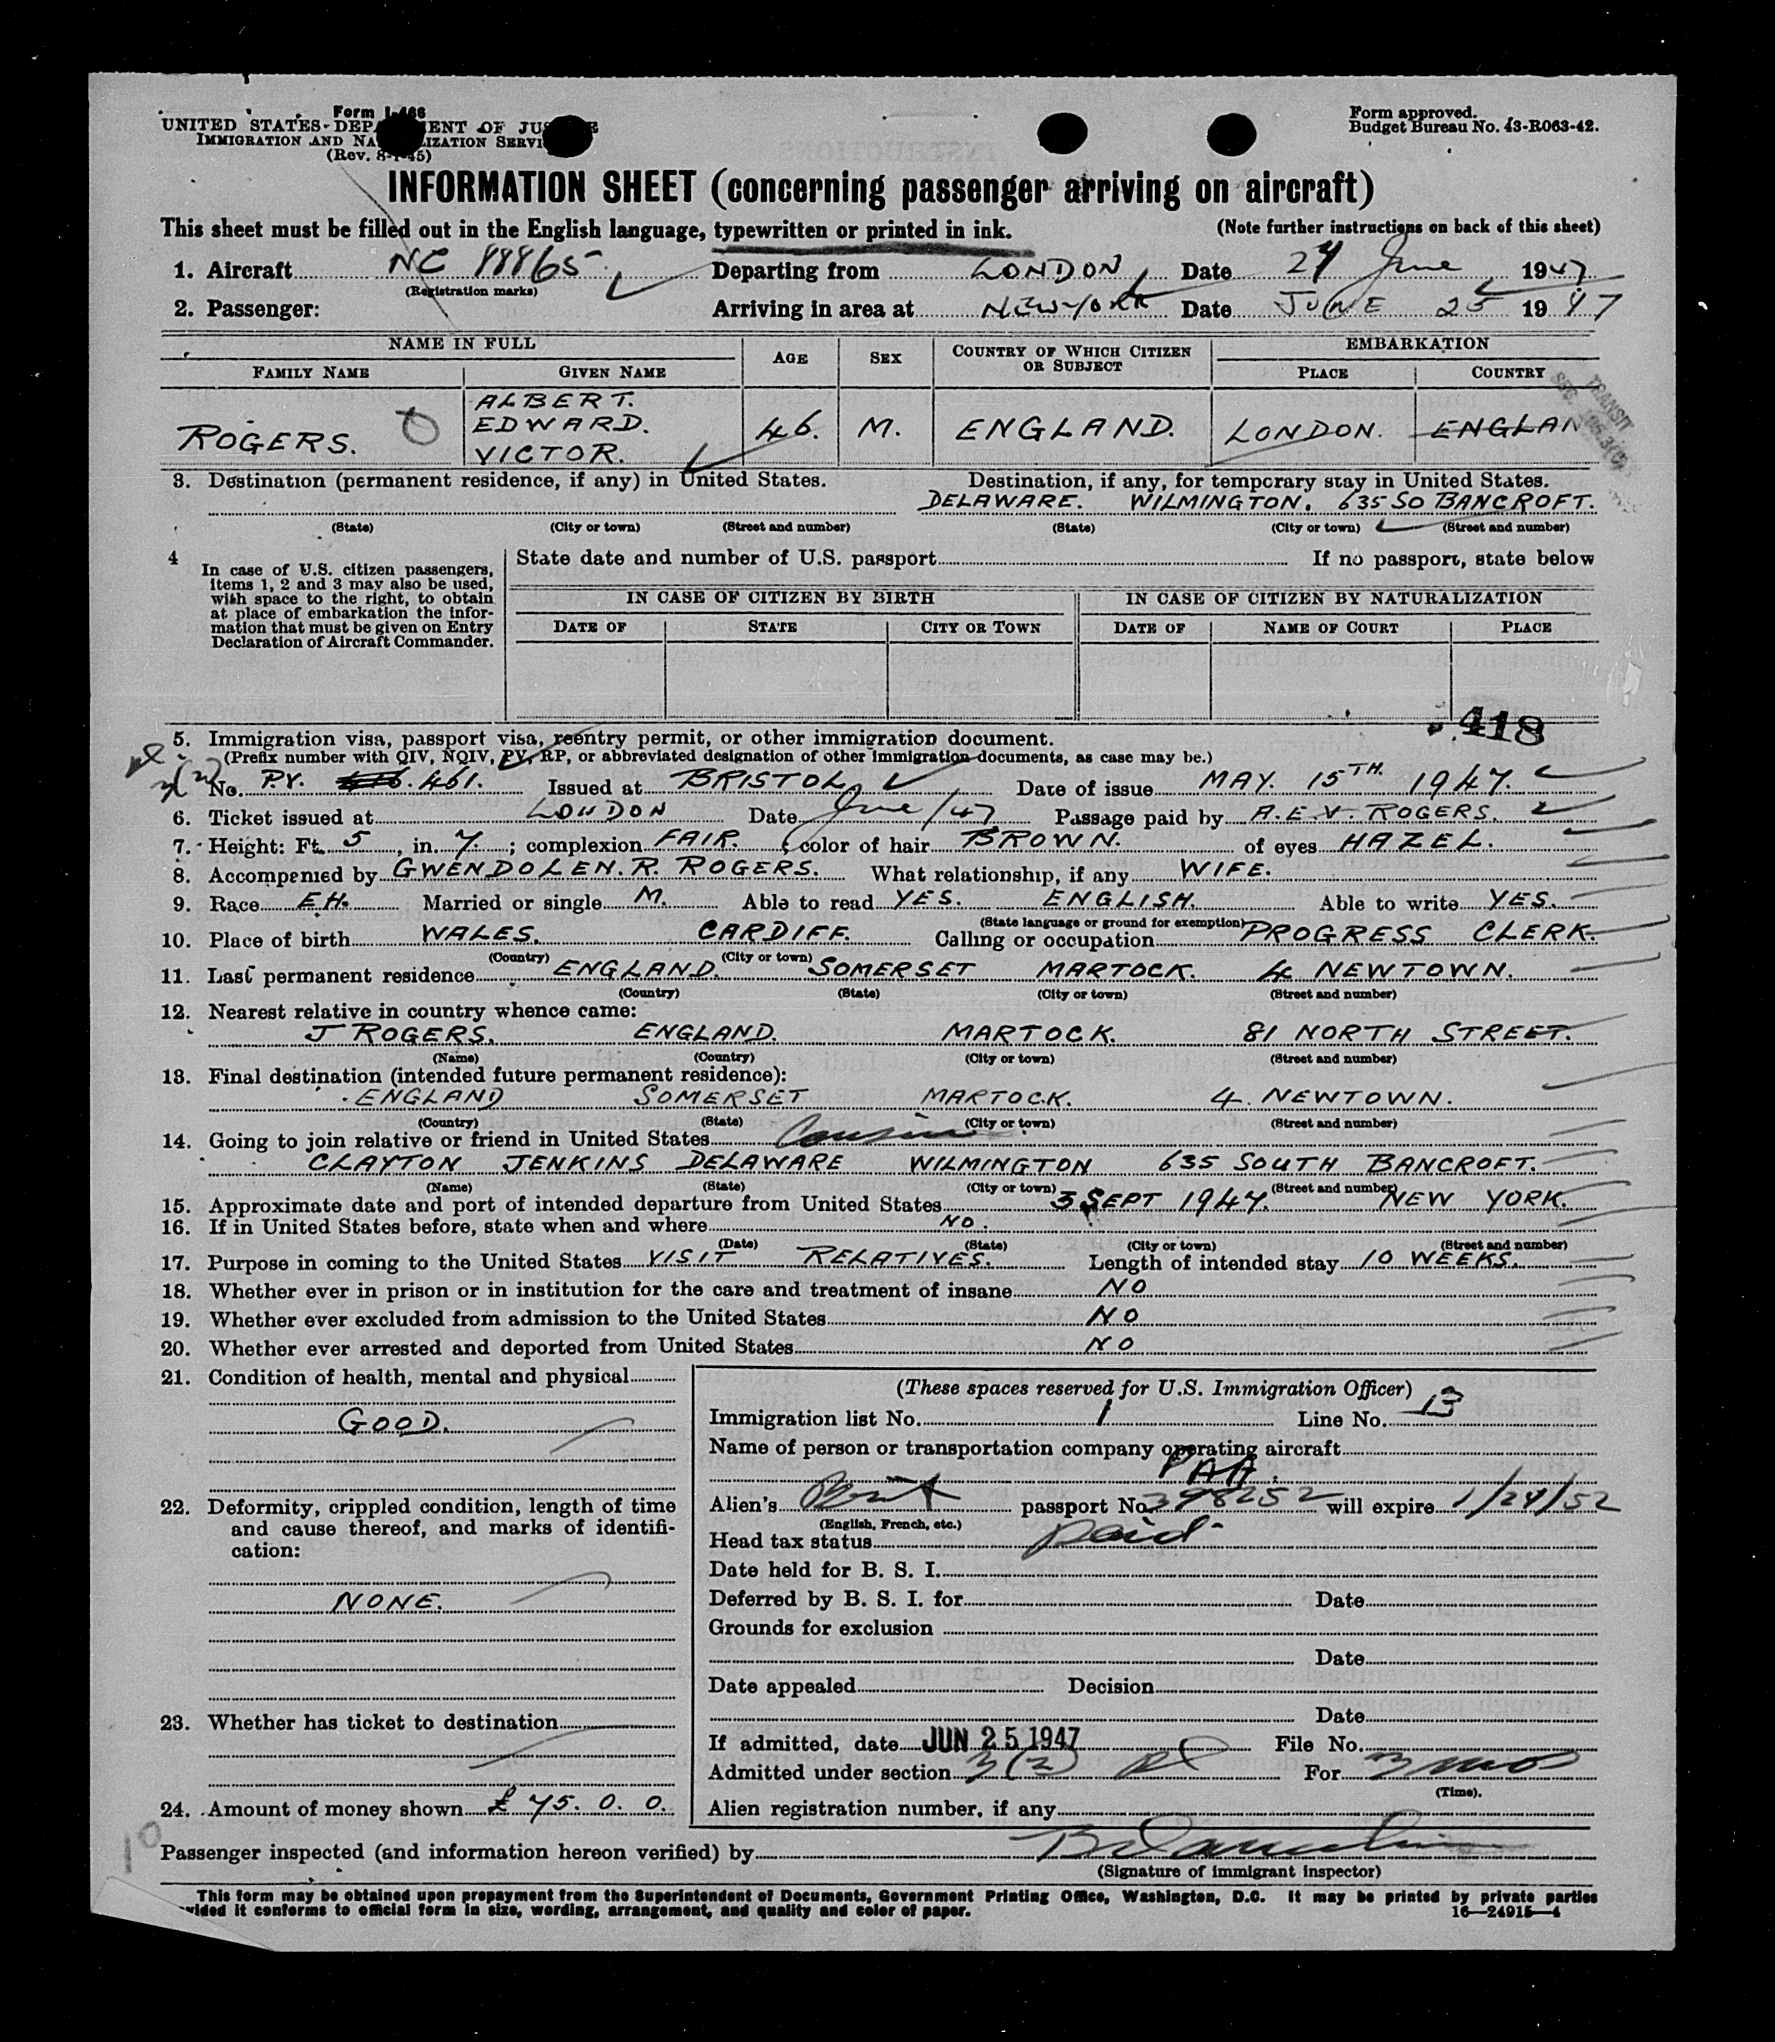 Form I-466
UNITED STATES DEPARTMENT OF JUSTICE
IMMIGRATION AND NATURALIZATION SERVICE
(Rev. 8-1-45)
Form approved.
Budget Bureau No. 43-R063-42.
INFORMATION SHEET (concerning passenger arriving on aircraft)
This sheet must be filled out in the English language, typewritten or printed in ink. (Note further instructions on back of this sheet)
1. Aircraft NC 88865 Departing from LONDON Date 24 June 1947
(Registration marks)
2. Passenger: Arriving in area at NEW YORK Date JUNE 25 1947
NAME IN FULL AGE SEX COUNTRY OF WHICH CITIZEN OR SUBJECT EMBARKATION
FAMILY NAME GIVEN NAME PLACE COUNTRY
ROGERS. ALBERT. EDWARD. VICTOR. 46. M. ENGLAND. LONDON. ENGLAN
TRANSIT
3. Destination (permanent residence, if any) in United States. Destination, if any, for temporary stay in United States.
DELAWARE. WILMINGTON. 635 SO BANCROFT.
(State) (City or town) (Street and number) (State) (City or town) (Street and number)
4 In case of U.S. citizen passengers, items 1, 2 and 3 may also be used, with space to the right, to obtain at place of embarkation the information that must be given on Entry Declaration of Aircraft Commander.
State date and number of U.S. passport If no passport, state below
IN CASE OF CITIZEN BY BIRTH IN CASE OF CITIZEN BY NATURALIZATION
DATE OF STATE CITY OR TOWN DATE OF NAME OF COURT PLACE
418
5. Immigration visa, passport visa, reentry permit, or other immigration document.
(Prefix number with QIV, NQIV, PV, RP, or abbreviated designation of other immigration documents, as case may be.)
No. P.V. 461. Issued at BRISTOL Date of issue MAY. 15TH. 1947.
6. Ticket issued at LONDON Date June/47 Passage paid by A.E.V. ROGERS.
7. Height: Ft. 5, in. 7.; complexion FAIR.; color of hair BROWN. of eyes HAZEL.
8. Accompanied by GWENDOLEN. R. ROGERS. What relationship, if any WIFE.
9. Race E.H. Married or single M. Able to read YES. ENGLISH. Able to write YES.
(State language or ground for exemption)
10. Place of birth WALES. CARDIFF. Calling or occupation PROGRESS CLERK.
(Country) (City or town)
11. Last permanent residence ENGLAND. SOMERSET MARTOCK. 4 NEWTOWN.
(Country) (State) (City or town) (Street and number)
12. Nearest relative in country whence came:
J ROGERS. ENGLAND. MARTOCK. 81 NORTH STREET.
(Name) (Country) (City or town) (Street and number)
13. Final destination (intended future permanent residence):
ENGLAND SOMERSET MARTOCK. 4. NEWTOWN.
(Country) (State) (City or town) (Street and number)
14. Going to join relative or friend in United States Cousin
CLAYTON JENKINS DELAWARE WILMINGTON 635 SOUTH BANCROFT.
(Name) (State) (City or town) (Street and number)
15. Approximate date and port of intended departure from United States 3 SEPT 1947. NEW YORK.
16. If in United States before, state when and where NO.
(Date) (State) (City or town) (Street and number)
17. Purpose in coming to the United States VISIT RELATIVES. Length of intended stay 10 WEEKS.
18. Whether ever in prison or in institution for the care and treatment of insane NO
19. Whether ever excluded from admission to the United States NO
20. Whether ever arrested and deported from United States NO
21. Condition of health, mental and physical
GOOD.
22. Deformity, crippled condition, length of time and cause thereof, and marks of identification:
NONE.
23. Whether has ticket to destination
24. Amount of money shown £ 75. 0. 0.
(These spaces reserved for U.S. Immigration Officer)
Immigration list No. 1 Line No. 13
Name of person or transportation company operating aircraft
PAA.
Alien's Brit passport No. 398252 will expire 1/24/52
(English, French, etc.)
Head tax status paid
Date held for B. S. I.
Deferred by B. S. I. for Date
Grounds for exclusion
Date
Date appealed Decision
Date
If admitted, date JUN 25 1947 File No.
Admitted under section 3(2) For 3 mos
(Time).
Alien registration number, if any
10
Passenger inspected (and information hereon verified) by
(Signature of immigrant inspector)
This form may be obtained upon prepayment from the Superintendent of Documents, Government Printing Office, Washington, D.C. It may be printed by private parties
vided it conforms to official form in size, wording, arrangement, and quality and color of paper. 16—24915—4